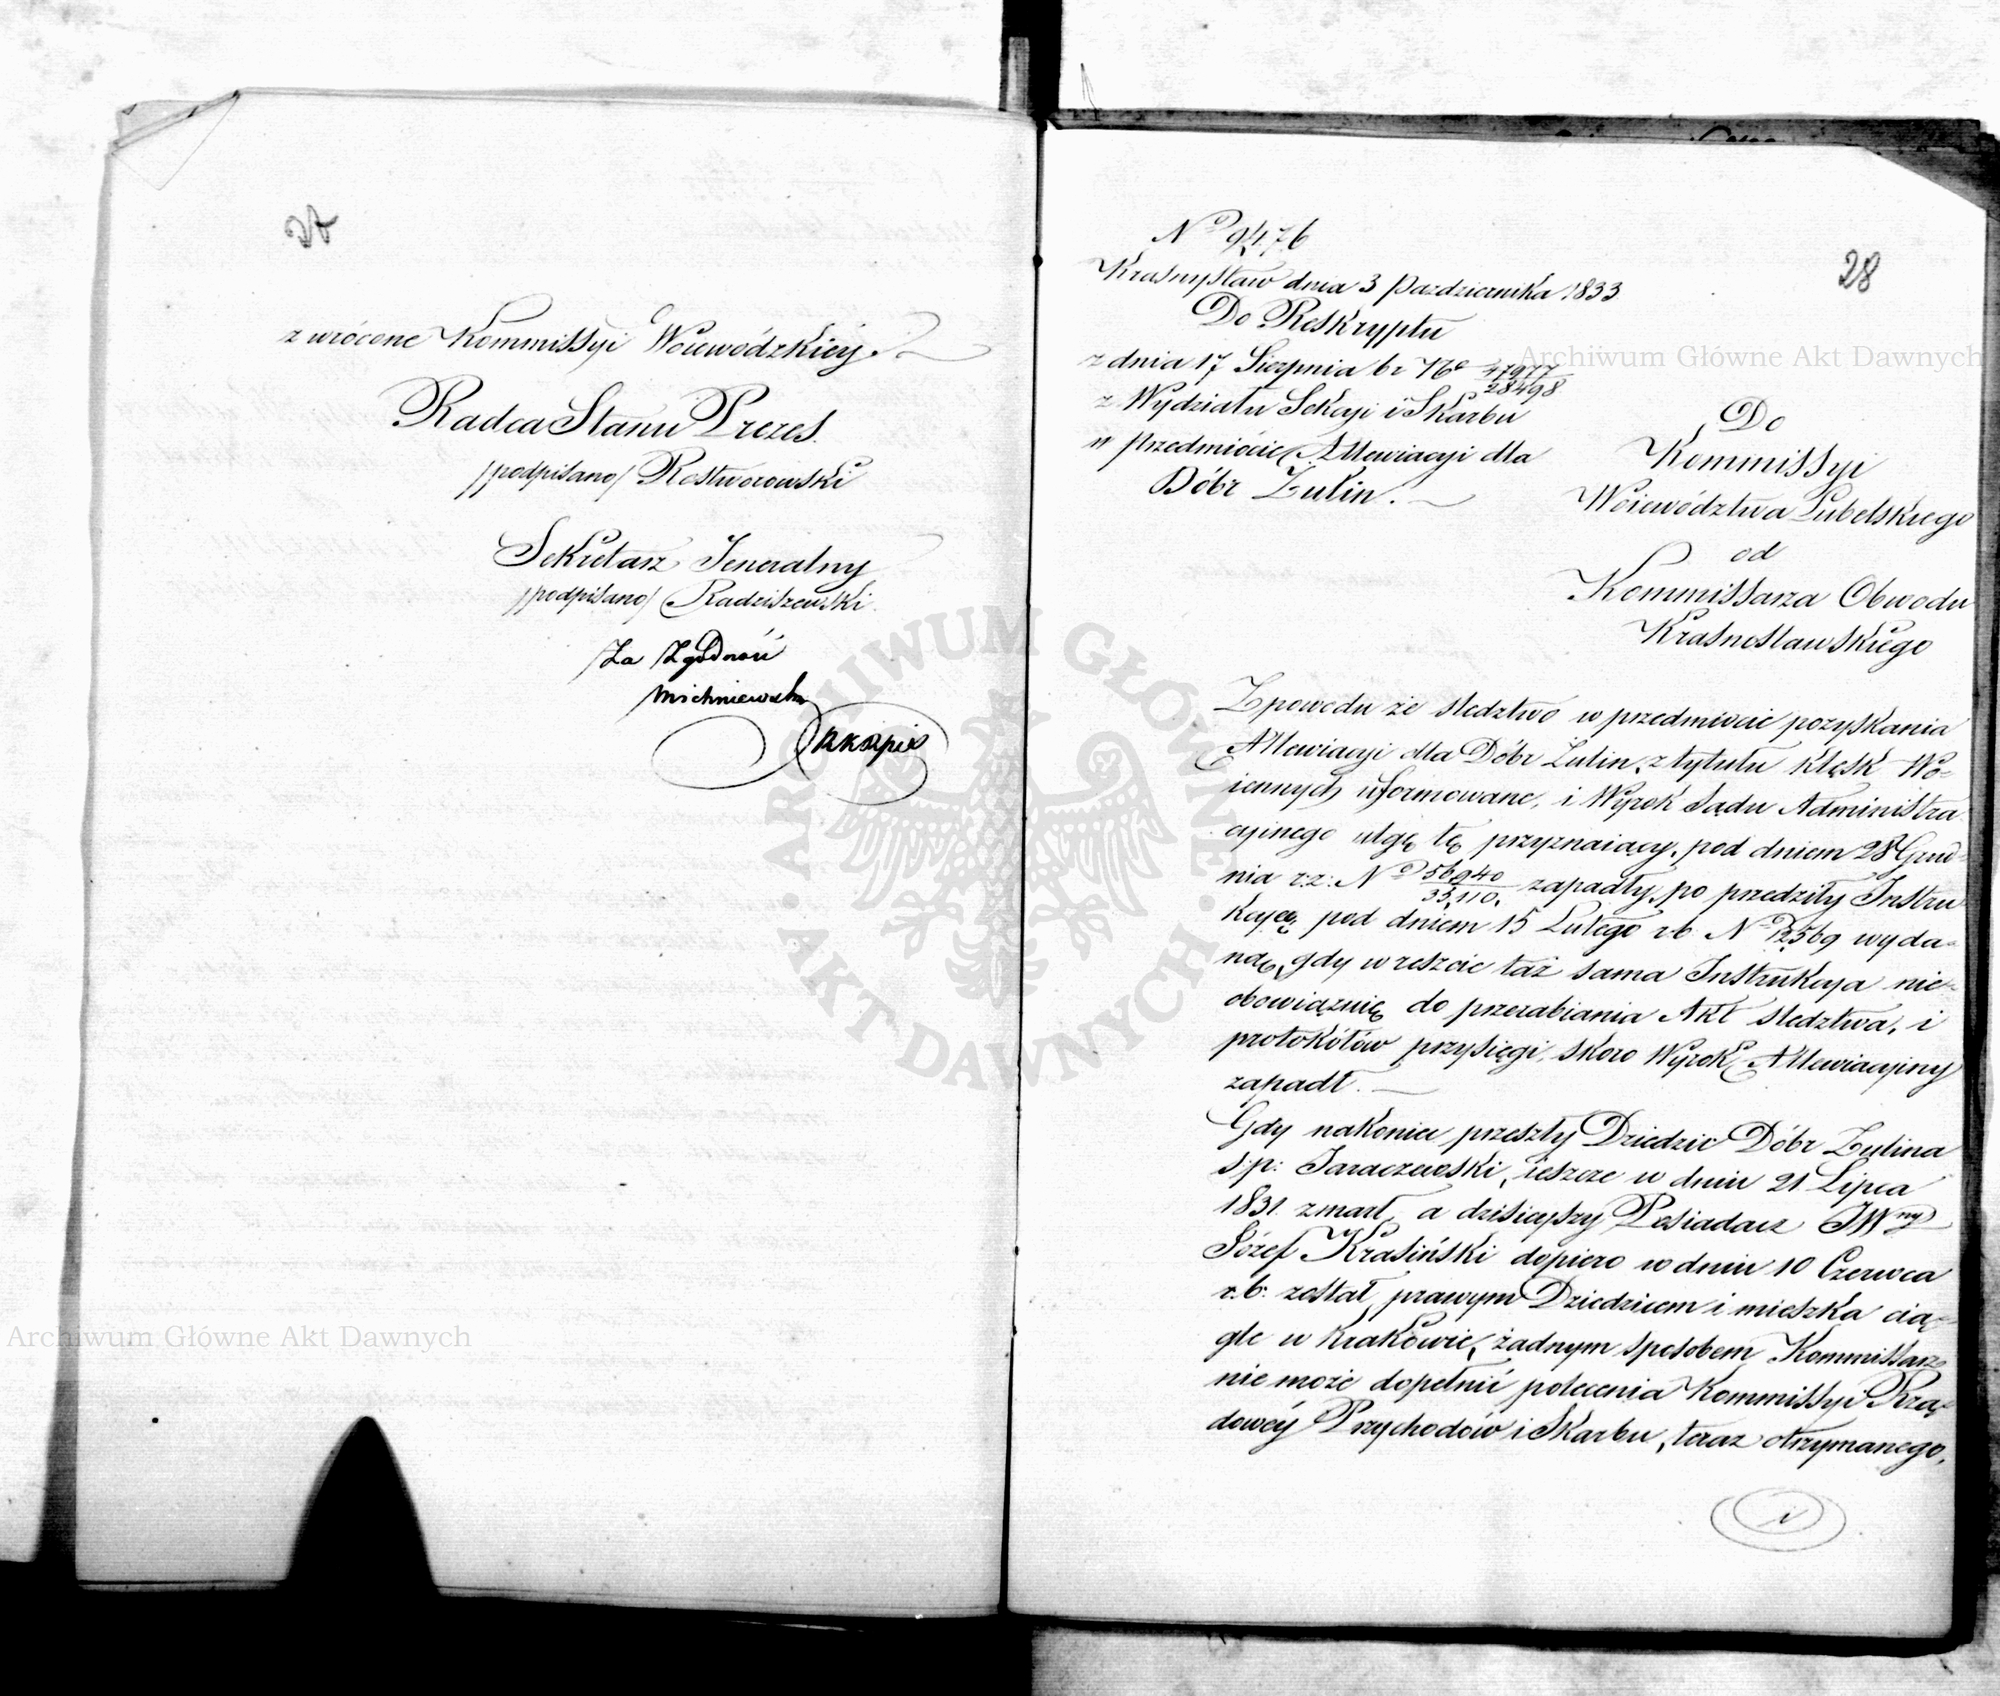 27
zwrócone Kommissyi Woiewódzkiéy.
Radca Stanu Prezes.
/podpisano/ Rostworowski
Sekretarz Jeneralny
/podpisano/ Radziszewski.
Za Zgodność
Michniewski
Archiwum Główne Akt Dawnych
28
No 9476
Krasnystaw dnia 3 Pazdziernika 1833
Do Reskryptu
z dnia 17 Sierpnia br No 47977/28498
z Wydziału Sekcyi i Skarbu
w przedmiocie Allewiacyi dla
Dóbr Żulin.
Archiwum Główne Akt Dawnych
Do
Kommissyi
Woiewództwa Lubelskiego
od
Kommissarza Obwodu
Krasnostawskiego
Z powodu że sledztwo w przedmiocie pozyskania
Allewiacyi dla Dóbr Żulin, z tytułu klęsk Wo-
iennych uformowane, i Wyrok Sądu Administra
cyinego ulgę tę przyznaiący, pod dniem 28 Grud-
nia r.z: No 56940/33,110, zapadły, po przedziły Instru
kcyą pod dniem 15 Lutego rb No 12569 wyda-
ną, gdy wreszcie taż sama Instrukcya nie
obowiąznie do przerabiania Akt sledztwa, i
protokółów przysięgi, skoro Wyrok Allewiacyiny
zapadł.
Gdy nakoniec przeszły Dziedzic Dóbr Żulina
s.p: Jaraczewski, ieszcze w dniu 21 Lipca
1831. zmarł, a dzisieyszy Posiadacz JWny
Józef Krasiński dopiero w dniu 10 Czerwca
r.b: został prawym Dziedzicem i mieszka cią-
gle w Krakowie, żadnym sposobem Kommissarz
nie może dopełnić polecenia Kommissyi Rzą-
dowéy Przychodów i Skarbu, teraz otrzymanego,
ARCHIWUM GŁÓWNE AKT DAWNYCH